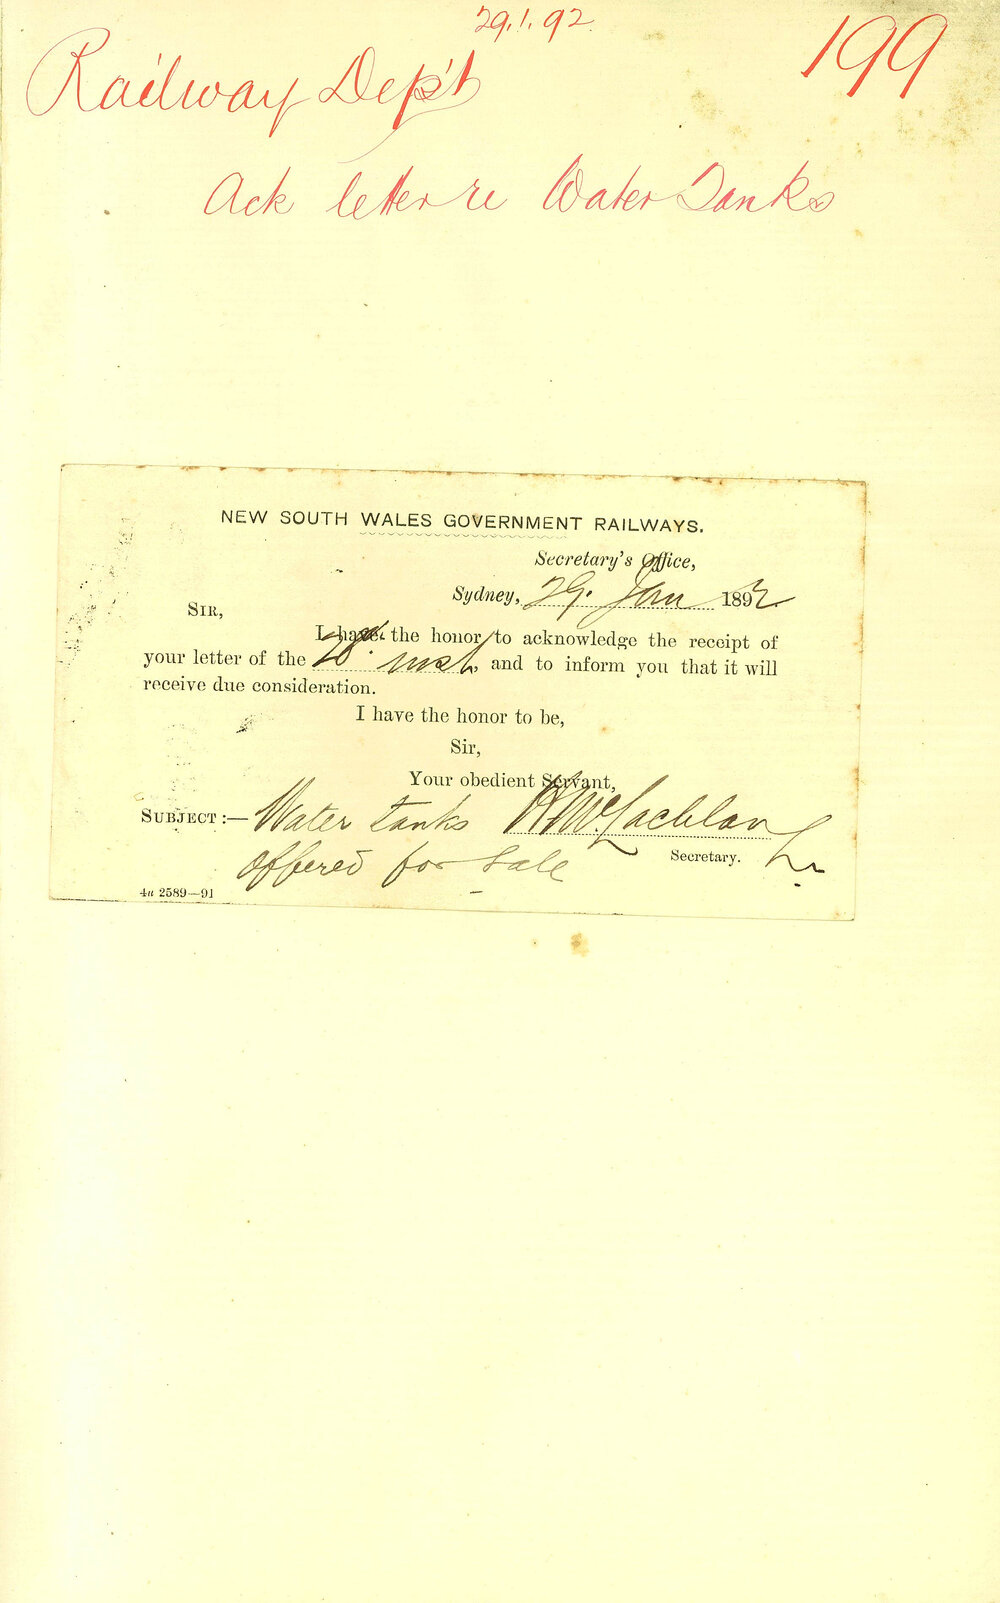 29.1.92.
199
Railway Dep't
Ack letter re Water Tanks
NEW SOUTH WALES GOVERNMENT RAILWAYS.
Secretary's Office,
Sydney, 29. Jan 1892.
SIR,
I have the honor to acknowledge the receipt of
your letter of the 28th inst, and to inform you that it will
receive due consideration.
I have the honor to be,
Sir,
Your obedient Servant,
SUBJECT :— Water tanks H McLachlan
offered for sale
Secretary.
4u 2589—91